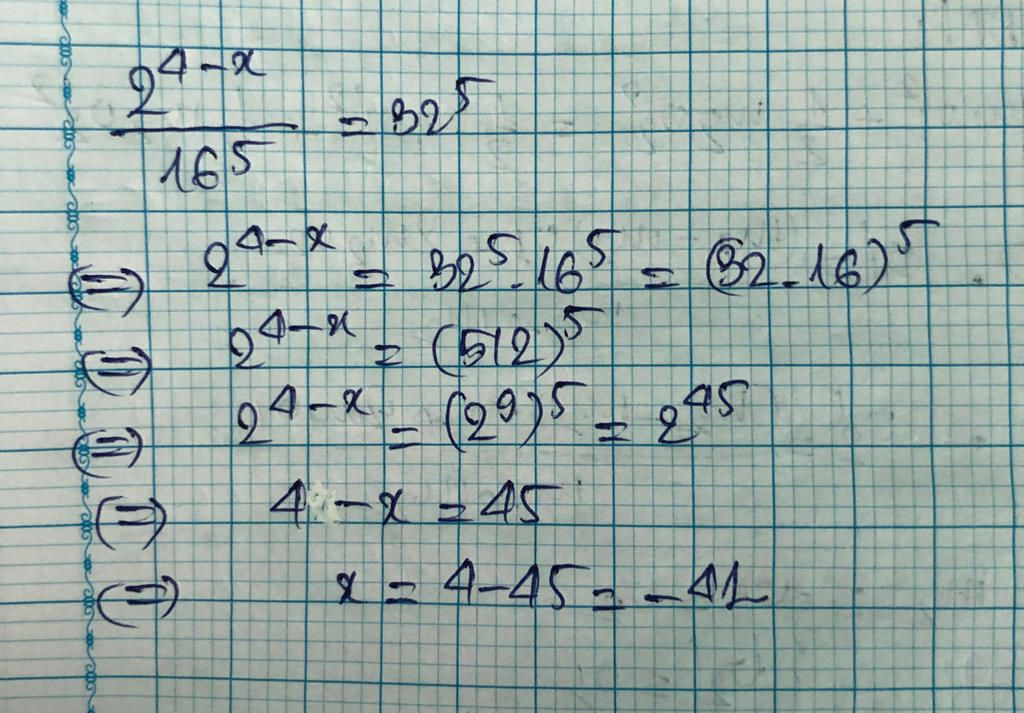 2^{4-x} / 16^5 = 32^5
(=) 2^{4-x} = 32^5 . 16^5 = (32 . 16)^5
(=) 2^{4-x} = (512)^5
(=) 2^{4-x} = (2^9)^5 = 2^{45}
(=) 4 - x = 45
(=) x = 4 - 45 = - 41